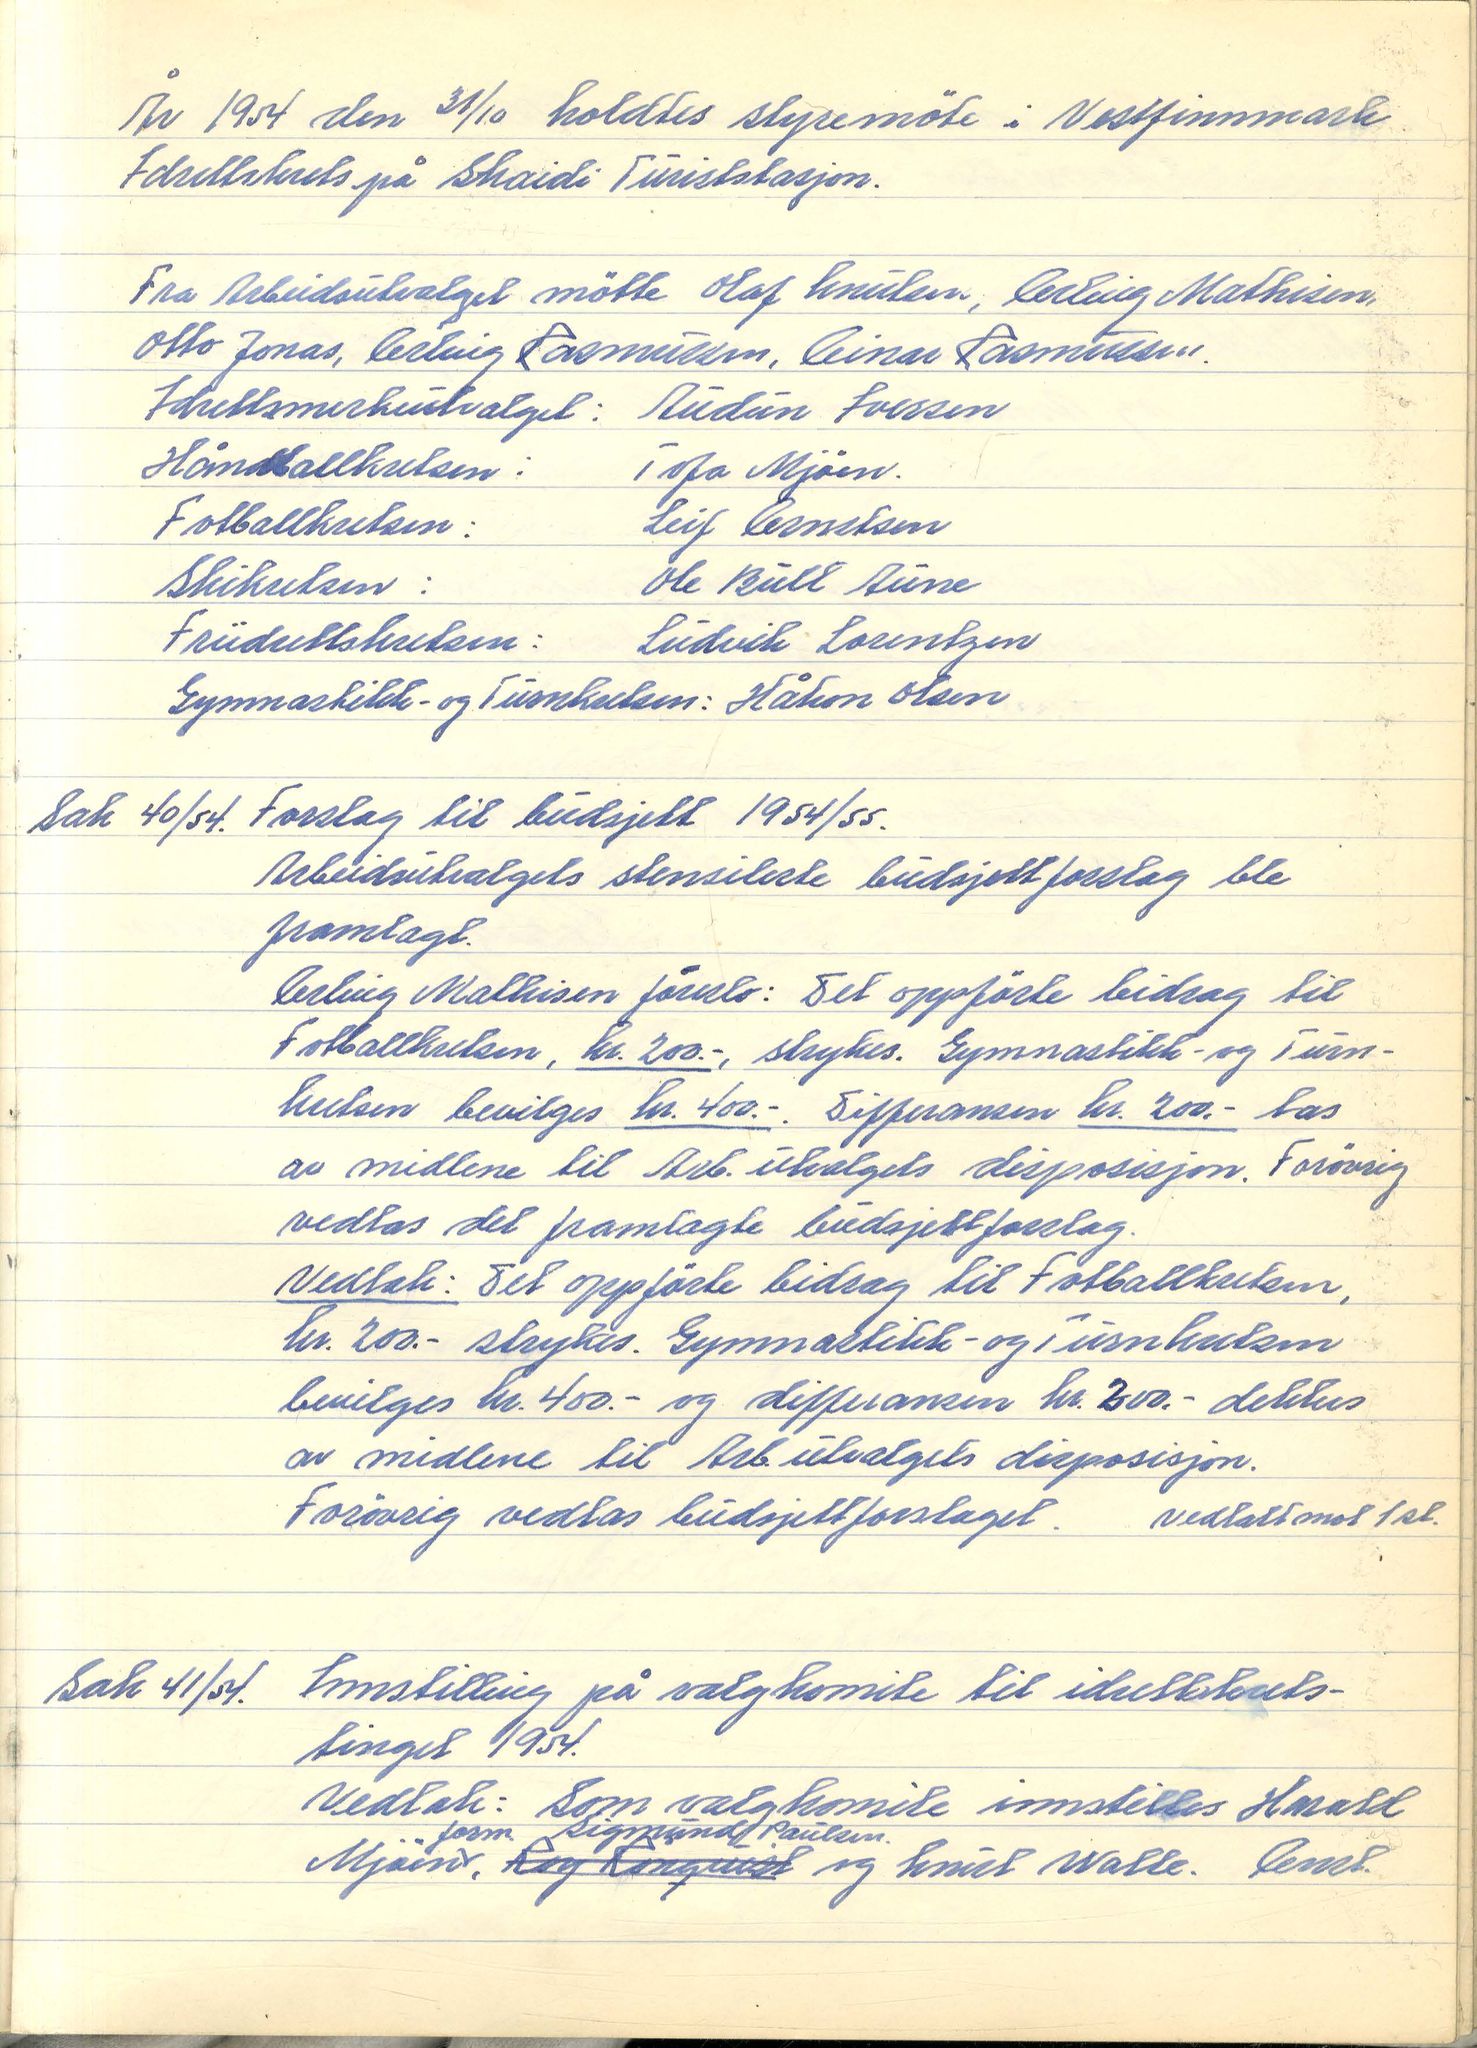 År 1954 den 31/10 holdtes styremöte i Vestfinnmark
Idrettskrets på Skaidi Turiststasjon.
Fra Arbeidsutvalget mötte Olaf Knutsen, Erling Mathisen,
Otto Jonas, Erling Rasmussen, Einar Rasmussen.
Idrettsmerkeutvalget: Audun Iversen
Håndballkretsen: Tofa Mjöen.
Fotballkretsen: Leif Ernstsen
Skikretsen: Ole Bull Aune
Friidrettskretsen: Ludvik Lorentzen
Gymnastikk- og Turnkretsen: Håkon Olsen
Sak 40/54. Forslag til budsjett 1954/55.
Arbeidsutvalgets stensilerte budsjettforslag ble
framlagt.
Erling Mathisen foreslo: Det oppförte bidrag til
Fotballkretsen, kr. 200.-, strykes. Gymnastikk- og Turn-
kretsen bevilges kr. 400.-. Differansen kr. 200.- tas
av midlene til Arb. utvalgets disposisjon. Forövrig
vedtas det framlagte budsjettforslag.
Vedtak: Det oppförte bidrag til Fotballkretsen,
kr. 200.- strykes. Gymnastikk- og Turnkretsen
bevilges kr. 400.- og differansen kr. 200.- dekkes
av midlene til Arb. utvalgets disposisjon.
Forövrig vedtas budsjettforslaget. vedtatt mot 1 st.
Sak 41/54. Innstilling på valgkomite til idrettskrets-
tinget 1954.
Vedtak: Som valgkomite innstilles Harald
form. Sigmund Paulsen.
Mjöen, Roy Ranquist og Knut Walle. Enst.